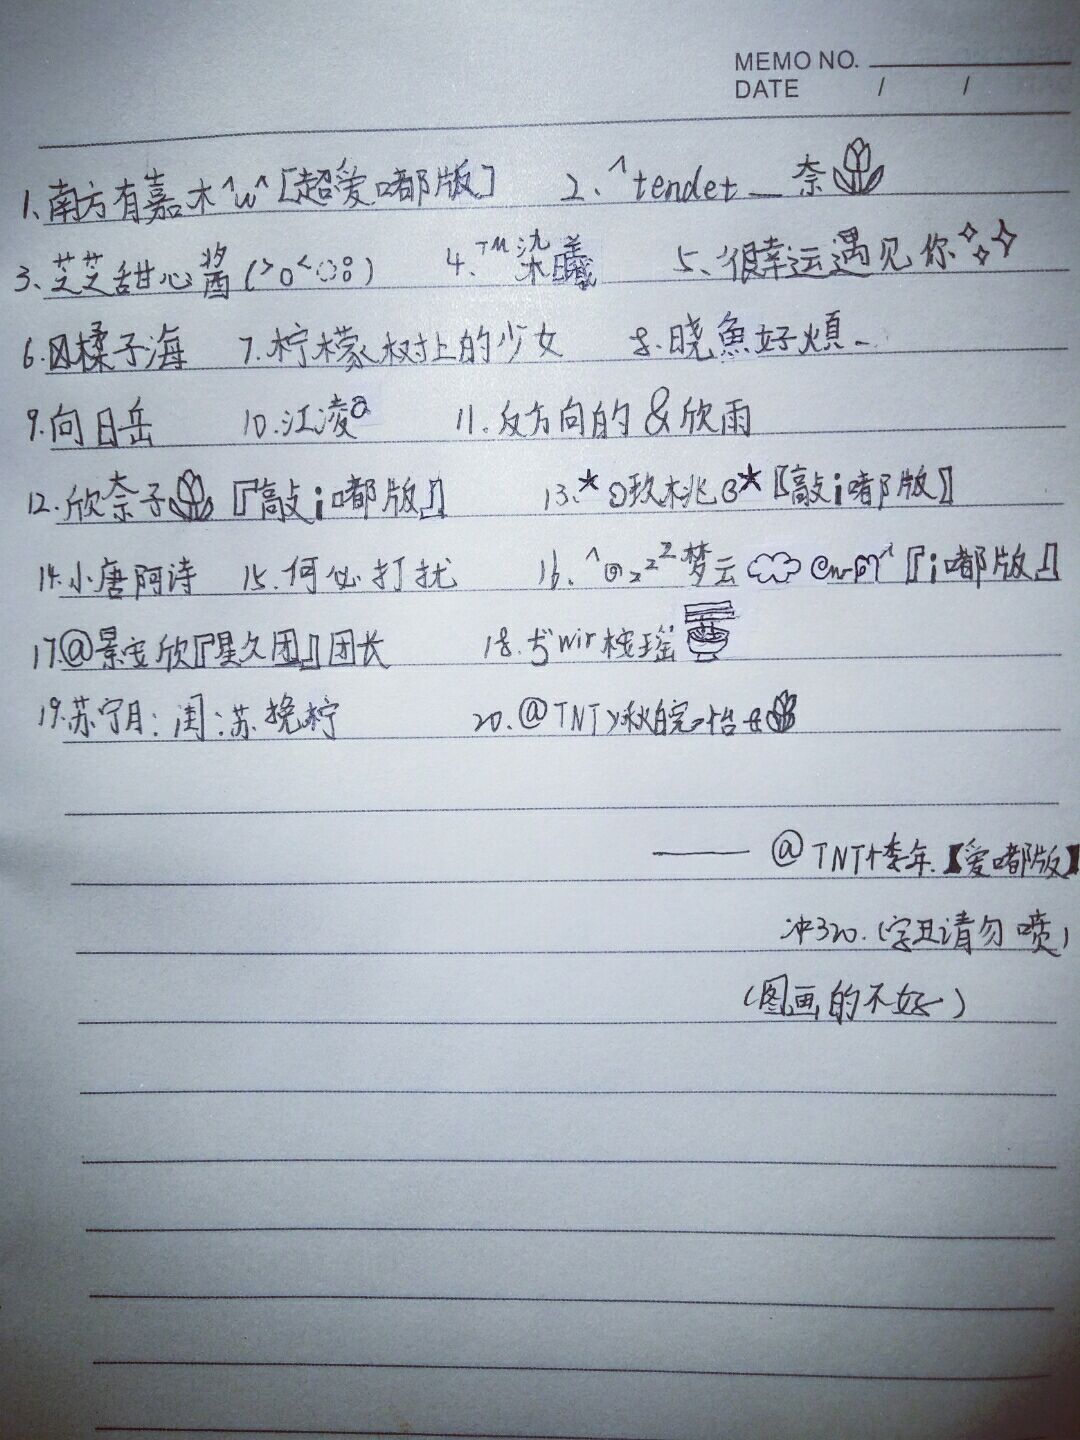 MEMO NO.
DATE / /
1、南方有嘉木^w^[超爱嘟版] 2、^tendet_奈
3、芝芝甜心酱(>o<ꦿ) 4、™染曦 5、很幸运遇见你
6.囟楺子海 7.柠檬树上的少女 8.晓魚好煩
9.向日岳 10.江凌 11.反方向的&欣雨
12.欣奈子『敲i嘟版』 13.★玫桃★【敲i嘟版】
14.小唐阿诗 15.何必打扰 16.梦云『i嘟版』
17.@景安欣『星久团』团长 18.wir桉瑶
19.苏宁月:闺:苏挽柠 20.@TNT秋皖怡
—— @TNT年.【爱嘟版】
冲320.(字丑请勿喷)
(图画的不好)